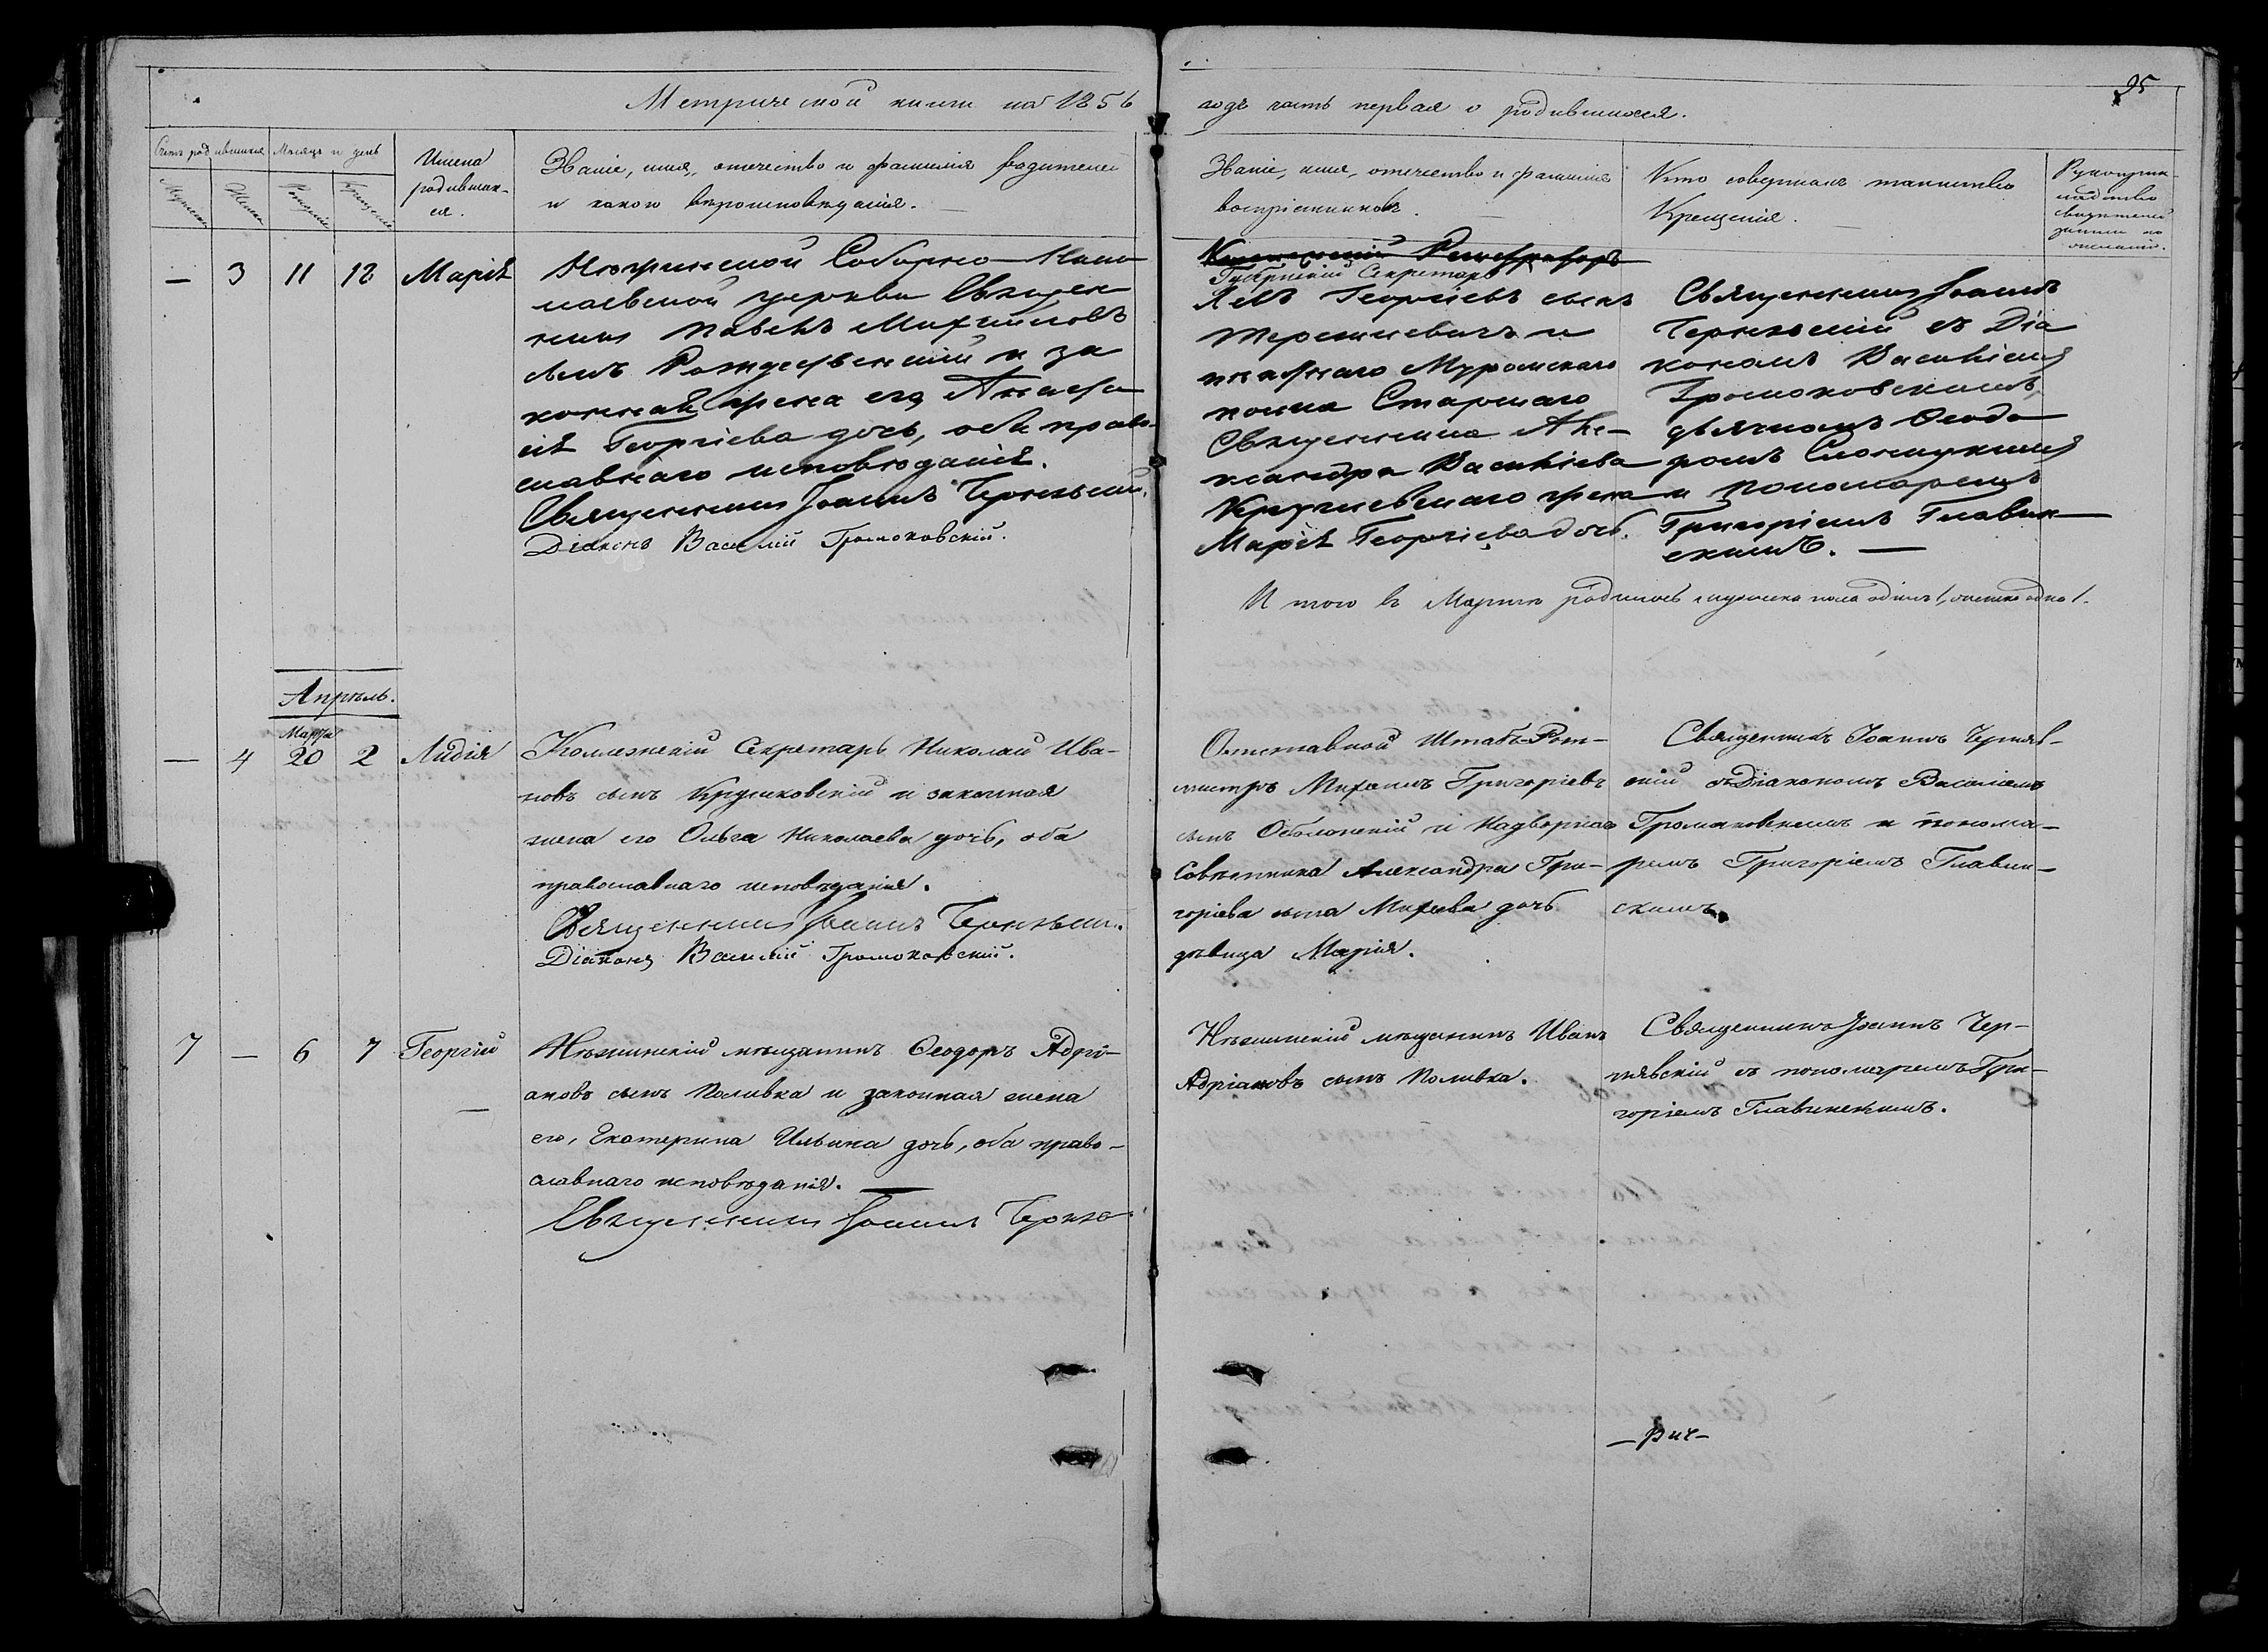 95
Метрической книги на 1856
годъ часть первая о родившихся.
Счетъ родившихся
Мѣсяцъ и день
Имена
родивших-
ся.
Званіе, имя, отечество и фамилія родителей
и какого вѣроисповѣданія.
Званіе, имя, отечество и фамилія
воспріемниковъ.
Кто совершалъ таинство
Крещенія.
Рукоприк-
ладство
свидетелей
записи по
желанію.
Мужеска
Женска
Рожденія
Крещенія
— 3 11 12 Марія
Нѣжинской Соборно-Нико
лаевской церкви Священ
никъ Павелъ Михайловъ
сынъ Рождественскій и за
конная жена его Анаста
сія Георгіева дочь, оба право-
славнаго исповѣданія.
Священникъ Іоаннъ Чернявскій.
Діаконъ Василій Громоковскій.
Регистраторъ
Губернскій Секретарь
Левъ Георгіевъ сынъ
и
Муромскаго
полка Старшаго
Священника Але-
ксандра Василіева
жена
Марія Георгіева дочь.
Священникъ Іоаннъ
Чернявскій съ Діа
кономъ Василіемъ
Громоковскимъ,
дьячкомъ Ѳеодо
ромъ
и Пономаремъ
Григоріемъ Главин-
скимъ. —
Итого въ Мартѣ родилось мужеска пола одинъ 1, женска одна 1.
Апрѣль.
Марта
— 4 20 2 Лидія
Коллежскій Секретарь Николай Ива-
новъ сынъ Круликовскій и законная
жена его Ольга Николаева дочь, оба
православнаго исповѣданія.
Священникъ Іоаннъ Чернявскій.
Діаконъ Василій Громоковскій.
Отставной Штабъ-Рот-
мистръ Михаилъ Григоріевъ
сынъ Оболонскій и Надворнаго
Совѣтника Александра Гри-
горіева сына дочь
дѣвица Марія.
Священникъ Іоаннъ Черняв-
скій съ Діакономъ Василіемъ
Громоковскимъ и понома-
ремъ Григоріемъ Главин-
скимъ.
7 — 6 7 Георгій
Нѣжинскій мѣщанинъ Ѳеодоръ Адрі-
ановъ сынъ Поливка и законная жена
его, Екатерина Ильина дочь, оба право-
славнаго исповѣданія.
Священникъ Іоаннъ
Нѣжинскій мѣщанинъ Иванъ
Адріановъ сынъ Поливка.
Священникъ Іоаннъ Чер-
нявскій съ пономаремъ Гри-
горіемъ Главинскимъ.